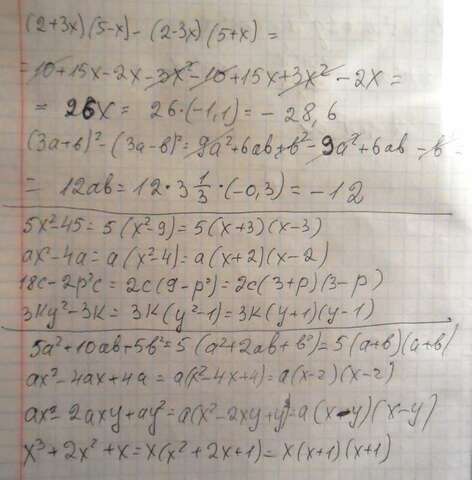 (2+3x)(5-x)-(2-3x)(5+x)=
=10+15x-2x-3x²-10+15x+3x²-2x=
= 26x = 26·(-1,1)=-28,6
(3a+b)²-(3a-b)²=9a²+6ab+b²-9a²+6ab-b
= 12ab=12·3 1/3·(-0,3)=-12
5x²-45=5(x²-9)=5(x+3)(x-3)
ax²-4a=a(x²-4)=a(x+2)(x-2)
18c-2p²c=2c(9-p²)=2c(3+p)(3-p)
3ky²-3k=3k(y²-1)=3k(y+1)(y-1)
5a²+10ab+5b²=5(a²+2ab+b²)=5(a+b)(a+b)
ax²-4ax+4a=a(x²-4x+4)=a(x-2)(x-2)
ax²-2axy+ay²=a(x²-2xy+y²)=a(x-y)(x-y)
x³+2x²+x=x(x²+2x+1)=x(x+1)(x+1)